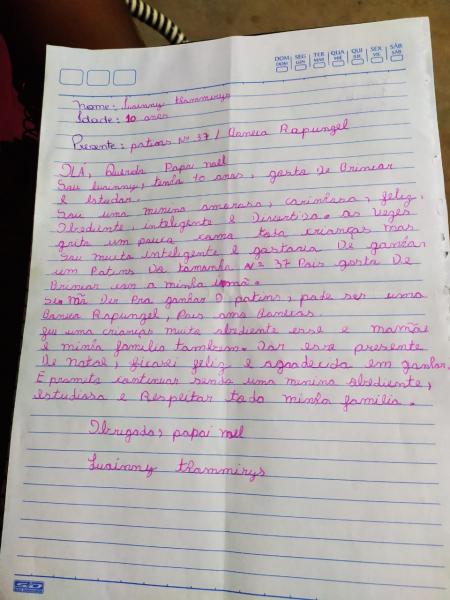 DOM SEG TER QUA QUI SEX SÁB
DOM LUN MAR MIÉ JUE VIE SÁB
Nome: Luainny thammirys
Idade: 10 anos
Presente: patins Nº 37 / Boneca Rapunzel
OLÁ, Querido Papai noel
Sou luainny, tenho 10 anos, gosto de Brincar
e estudar.
Sou uma menina amorosa, carinhosa, feliz,
Obediente, inteligente e Divertida. as vezes
grito um pouco como toda crianças mas
Sou muito inteligente e gostaria De ganhar
um Patins Do tamanho Nº 37 Pois gosto De
Brincar com a minha irmã.
Se não Der Pra ganhar O patins, pode ser uma
Boneca Rapunzel, Pois amo Bonecas.
Sou uma crianças muito obediente esse e mamãe
e minha família tambem. Dar esse presente
De natal, ficarei feliz e agradecida em ganhar.
E prometo continuar sendo uma menina obediente,
estudiosa e Respeitar toda minha família.
Obrigada, papai noel
Luainny thammirys